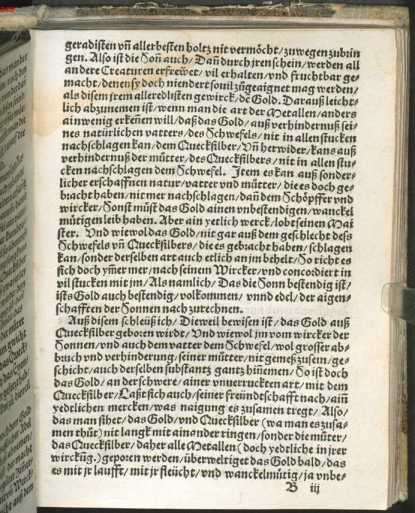 geradisten vñ allerbesten holtz nit vermöcht/zuwegen zubrin
gen. Also ist die Soñ auch/Dañ durch jren schein/werden all
andere Creaturen erfrewet/vil erhalten/vnd fruchtbar ge-
macht/denen sy doch niendert souil zůgeaignet mag werden/
als disem jrem alleredlisten gewirck/dē Gold. Darauß leicht-
lich abzunemen ist/wenn man die art der Metallen/anders
ain wenig erkeñen will/das das Gold/auß verhindernuß sei-
nes natürlichen vatters/des Schwefels/nit in allen stucken
nachschlagen kan/dem Queckfilber/Vñ herwider/kans auß
verhindernuß der můtter/des Queckfilbers/nit in allen stu-
cken nachschlagen dem Schwefel. Item es kan auß sonder-
licher erschaffnen natur/vatter vnd můtter/die es doch ge-
bracht haben/nit mer nachschlagen/dañ dem Schöpffer vnd
wircker/Sonst můst das Gold ainen vnbestendigen/wanckel
můtigen leib haben. Aber ain yetlich werck/lobt seinen Mai
ster. Vnd wiewol das Gold/nit gar auß dem geschlecht deß
Schwefels vñ Queckfilbers/die es gebracht haben/schlagen
kan/sonder derselben art auch etlich an jm behelt/So richt es
sich doch ym̃er mer/nach seinem Wircker/vnd concordiert in
vil stucken mit jm/Als namlich/Das die Sonn bestendig ist/
ists Gold auch bestendig/volkommen/vnnd edel/der aigen-
schafften der Sonnen nach zurechnen.
Auß disem schleüß ich/Dieweil bewisen ist/das Gold auß
Queckfilber geboren würdt/Vnd wiewol jm vom wircker der
Sonnen/vnd auch dem vatter dem Schwefel/wol grosser ab-
bruch vnd verhinderung/seiner můtter/nit gemeß zusein/ge-
schicht/auch der selben substantz gantz hin̄emen/So ist doch
das Gold/an der schwere/ainer vnuerruckten art/mit dem
Queckfilber/Laßt sich auch/seiner freündtschafft nach/aiñ
yedtlichen mercken/was naigung es zusamen tregt/Also/
das man sihet/das Gold/vnd Queckfilber (wa man es zusa-
men thůt) nit langk mit ainander ringen/sonder die můter/
das Queckfilber/daher alle Metallen (doch yedtliche in jrer
wirckūg.) geporen werden/überweltiget das Gold bald/das
es mit jr laufft/mit jr fleücht/vnd wanckelmütig/ja vnbe-
B iij